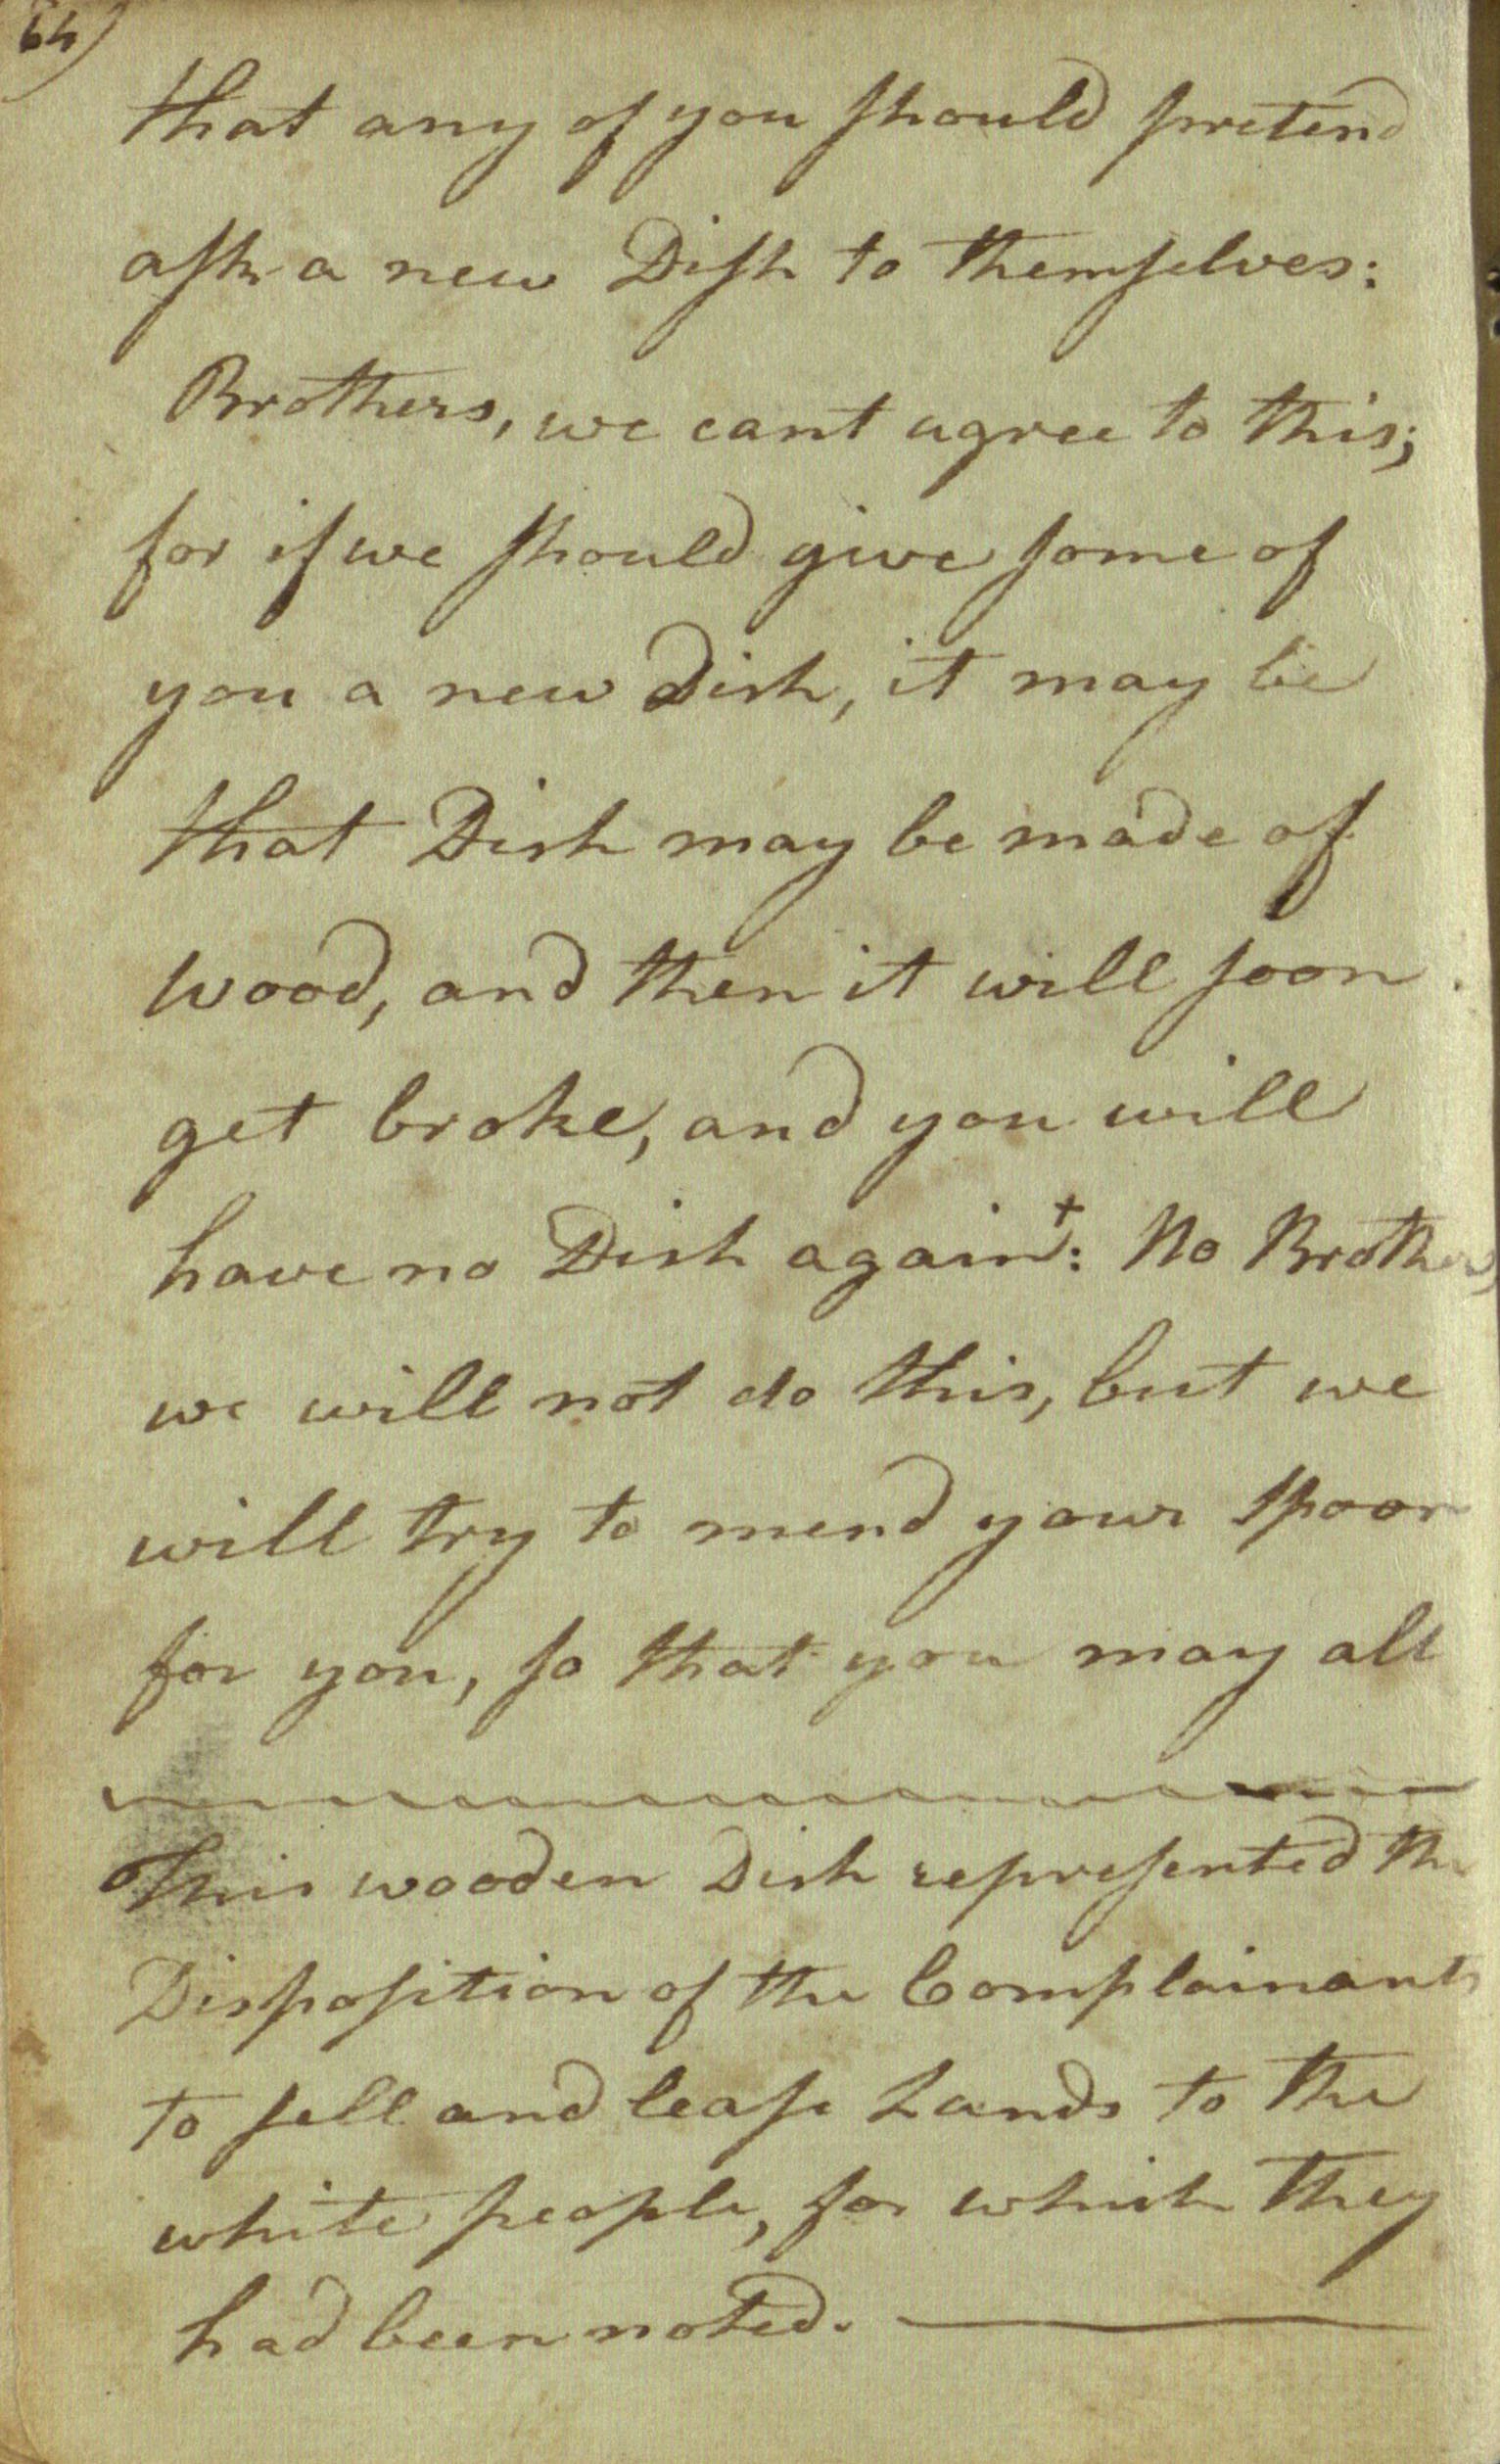 64)
that any of you should pretend
ask a new Dish to themselves:
Brothers, we cant agree to this;
for if we should give some of
you a new Dish, it may be
that Dish may be made of
wood, and then it will soon
get broke, and you will
have no Dish again†: No Brothers,
we will not do this, but we
will try to mend your spoon
for you, so that you may all
This wooden Dish represented the
Disposition of the Complainants
to sell and lease Lands to the
white people, for which they
had been noted.